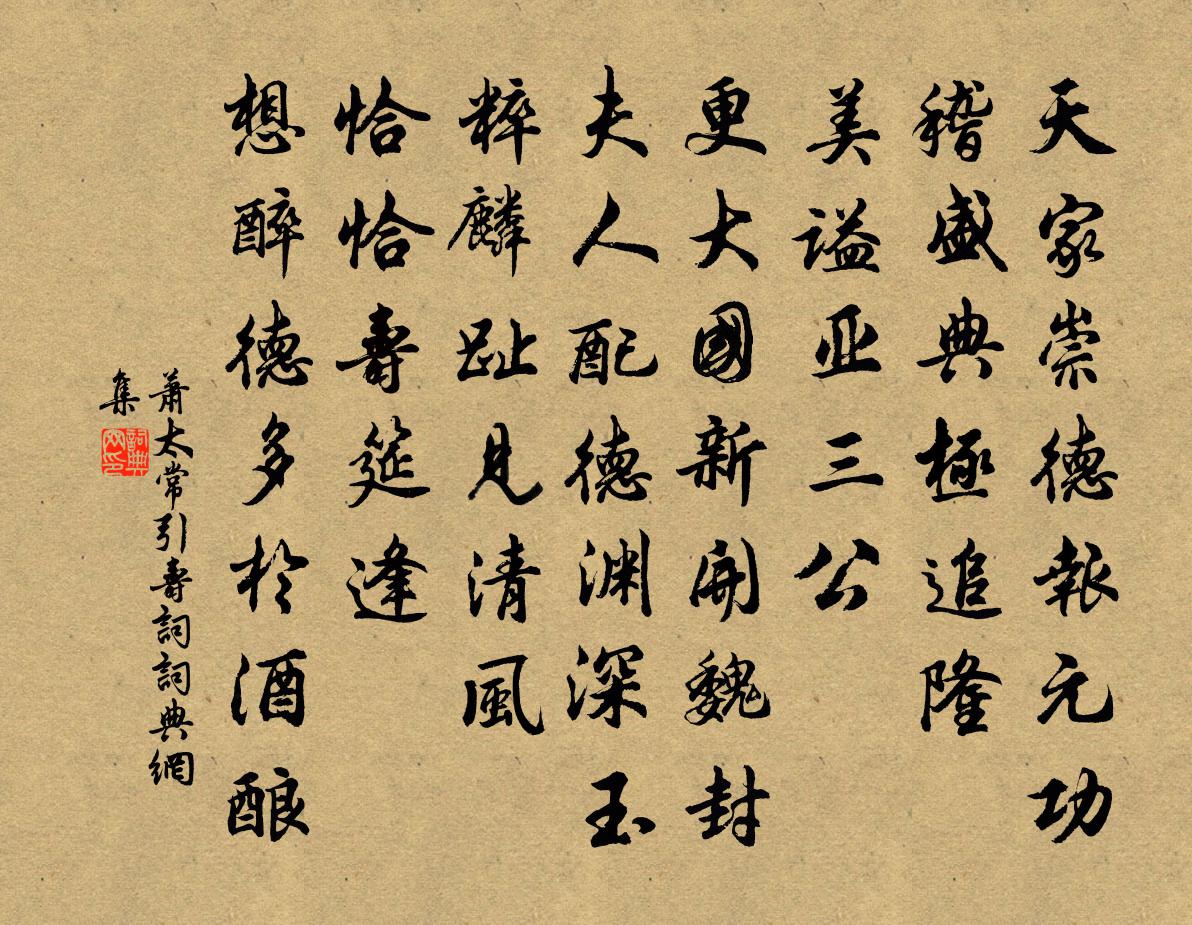 天家崇德報元功
稽盛典極追隆
美谥亚三公
更大國新開魏封
夫人配德渊深玉
粹麟趾見清風
恰恰壽筵逢
想醉德多於酒酿
萧太常引壽詞詞典網
集
詞典
网印